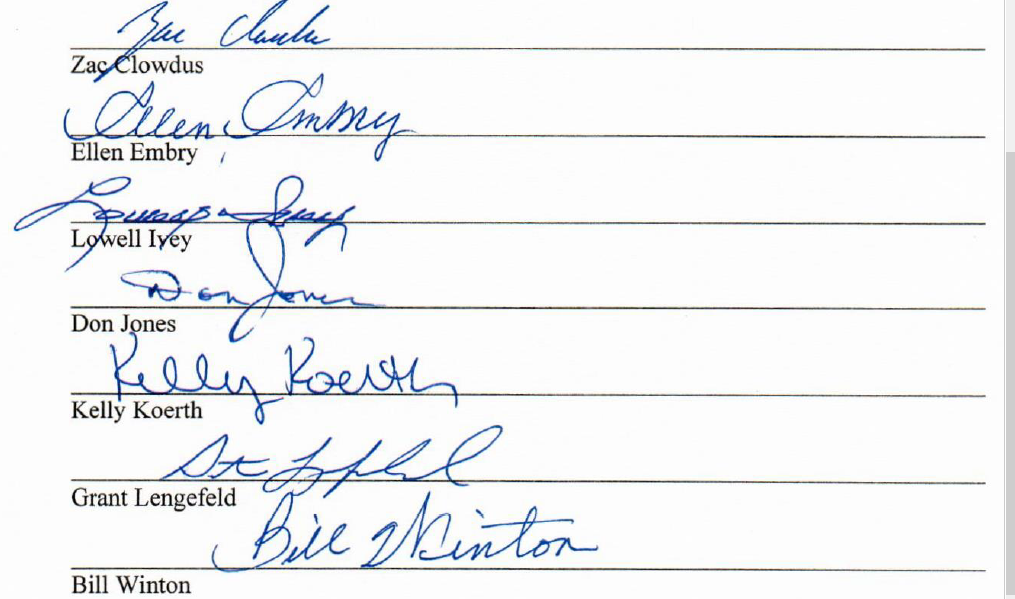 Zac Clowdus
Zac Clowdus
Ellen Embry
Ellen Embry
Lowell Ivey
Don Jones
Don Jones
Kelly Koerth
Kelly Koerth
Grant Lengefeld
Bill Winton
Bill Winton